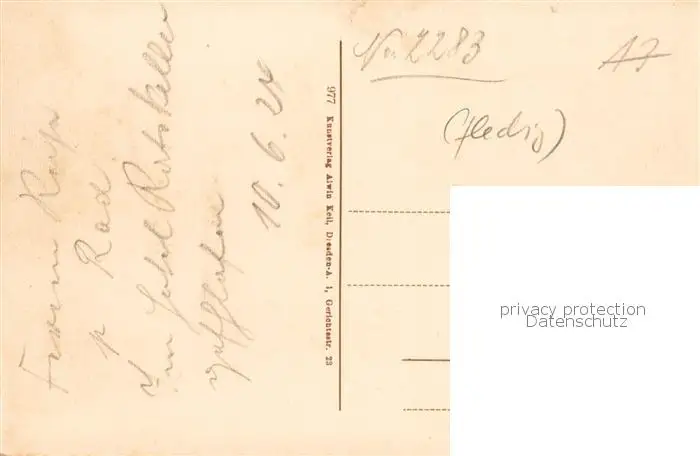 p. Rad
im Hotel Ratskeller
10. 6. 24
977 Kunstverlag Alwin Keil, Dresden-A. 1, Gerichtsstr. 23
No 2283
A7
(fleckig)
privacy protection
Datenschutz